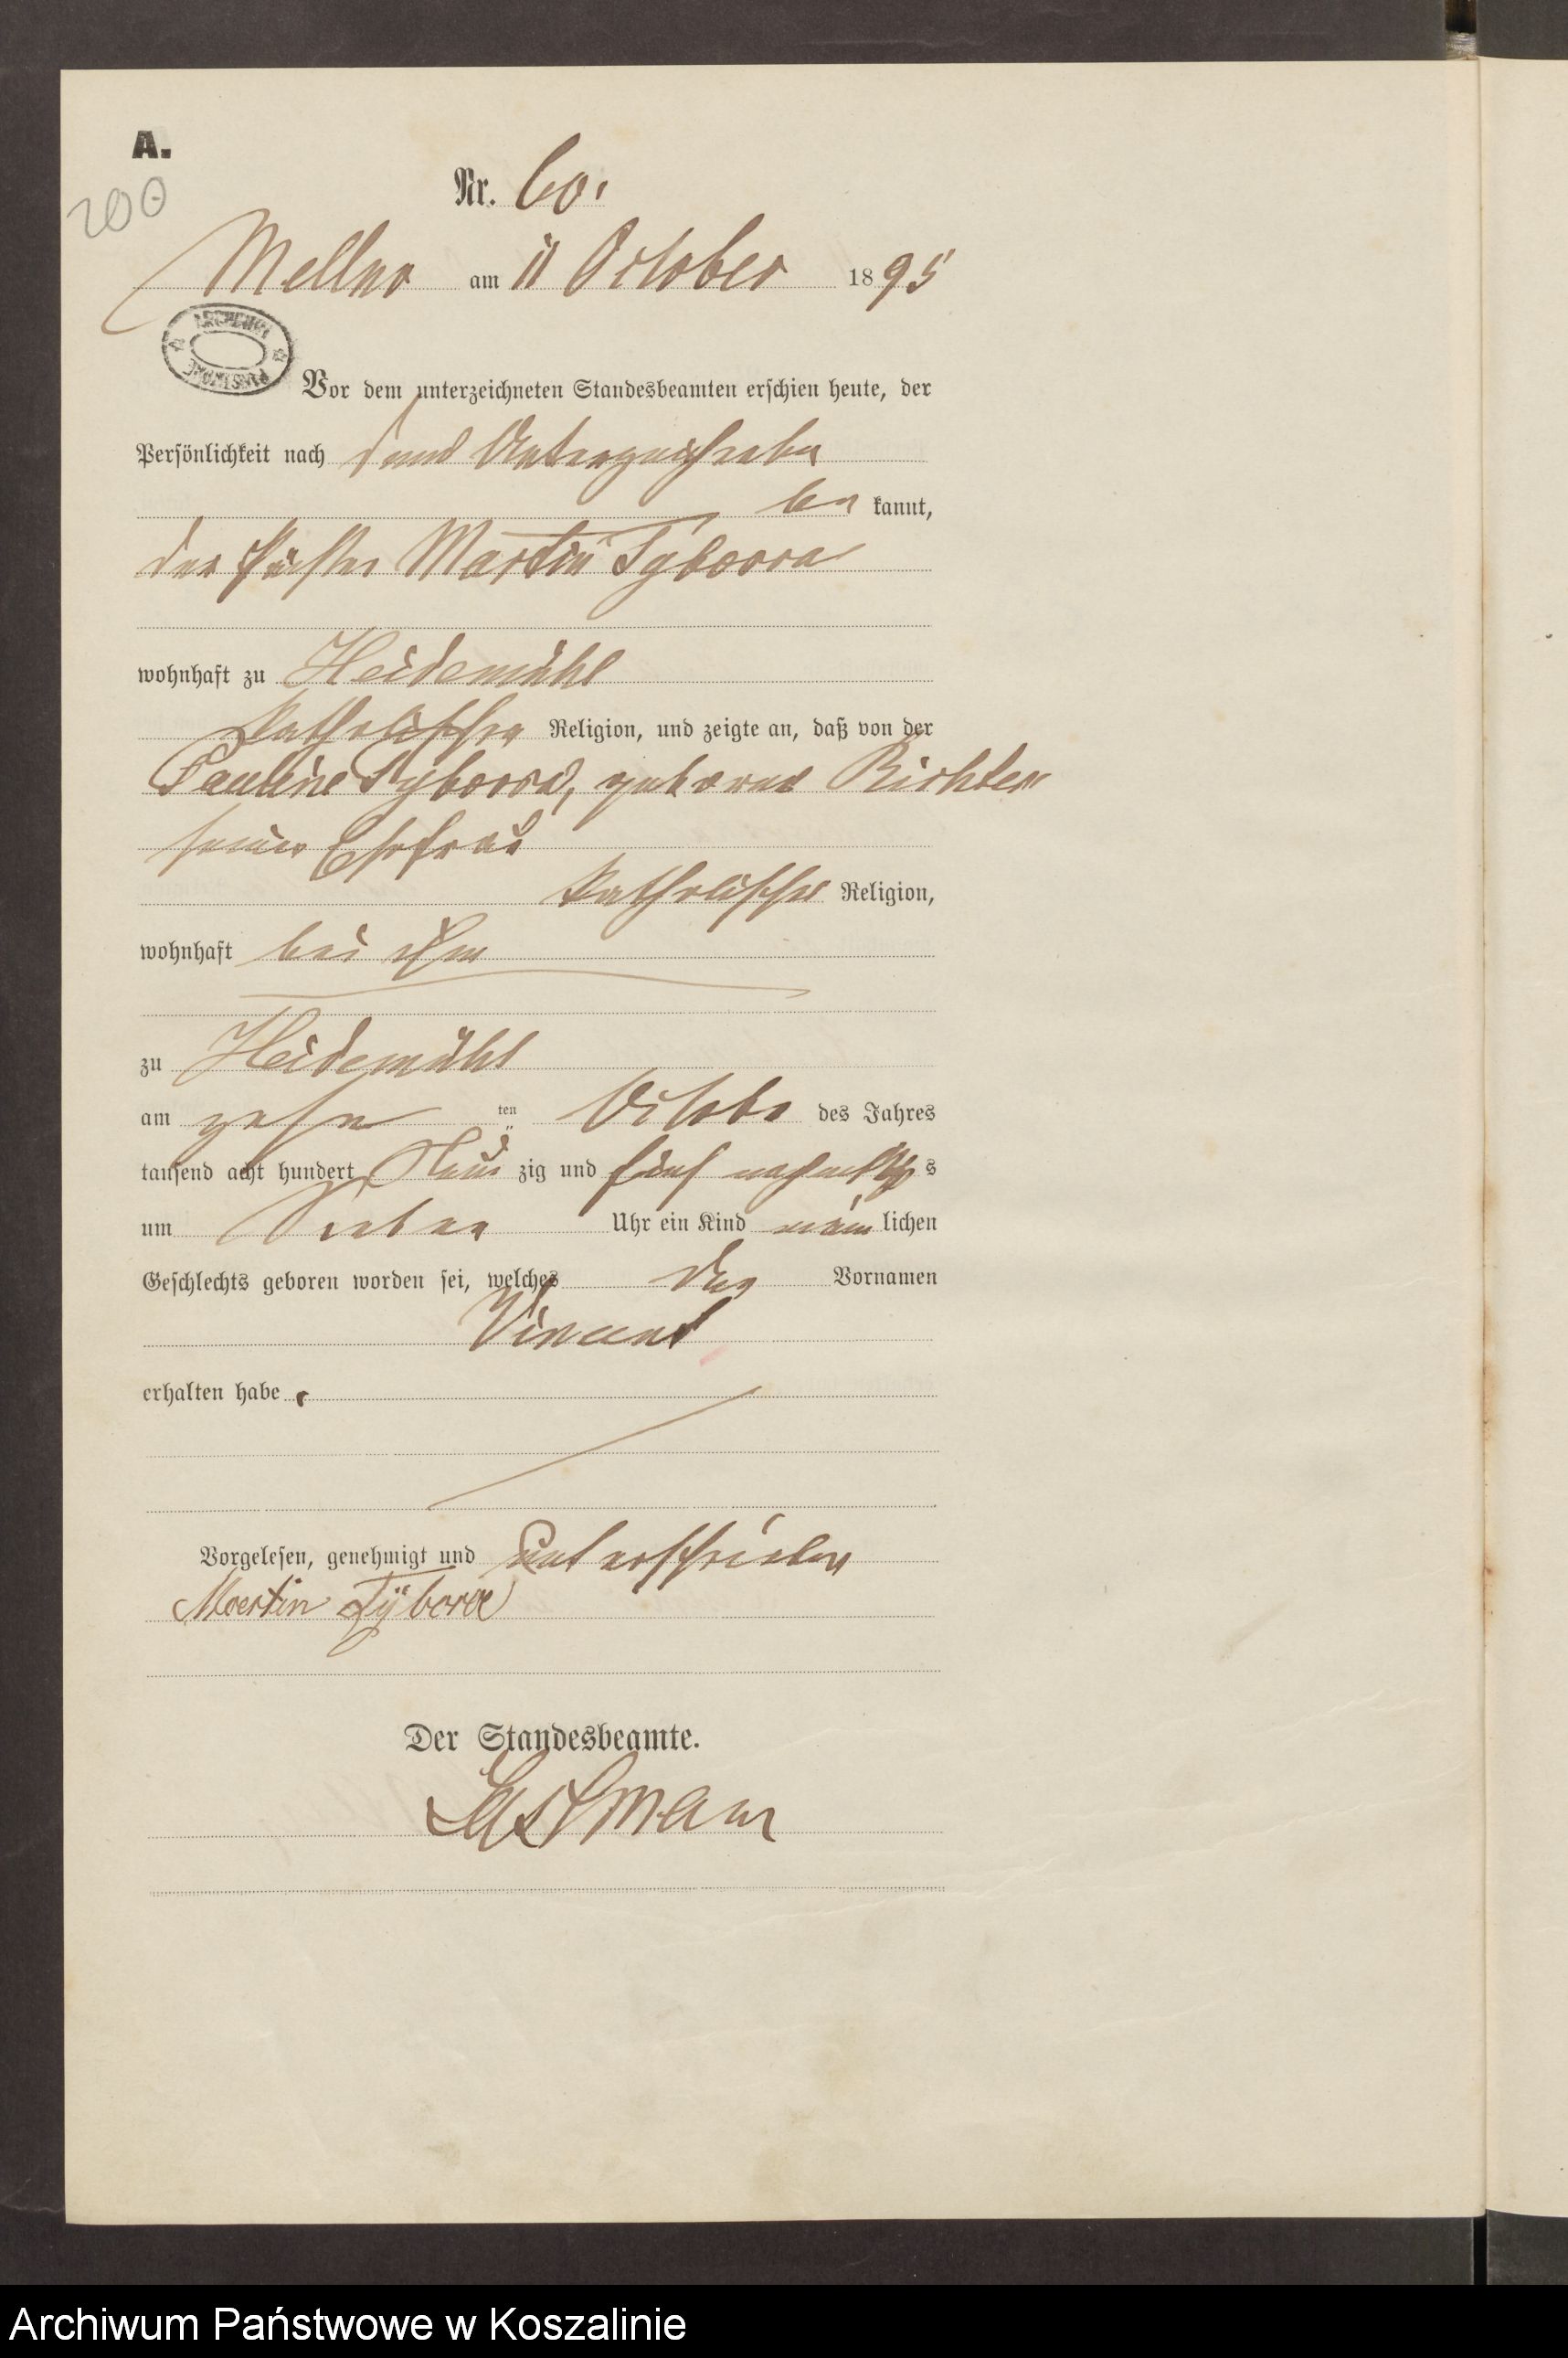 A.
200
Nr. 60.
am 11 October 1895
ARCHIWUM PAŃSTWOWE
Vor dem unterzeichneten Standesbeamten erschien heute, der
Persönlichkeit nach
be kannt,
der Pächter Martin Tyborra
wohnhaft zu Heidemühl
katholischer Religion, und zeigte an, daß von der
Pauline Tyborra, geborene Richter
seiner Ehefrau
katholischer Religion,
wohnhaft bei ihm
zu Heidemühl
am zehn ten October des Jahres
tausend acht hundert Neun zig und fünf nachmittag s
um Sieben Uhr ein Kind männ lichen
Geschlechts geboren worden sei, welches den Vornamen
Vincent
erhalten habe.
Vorgelesen, genehmigt und unterschrieben
Martin Tyborra
Der Standesbeamte.
Archiwum Państwowe w Koszalinie